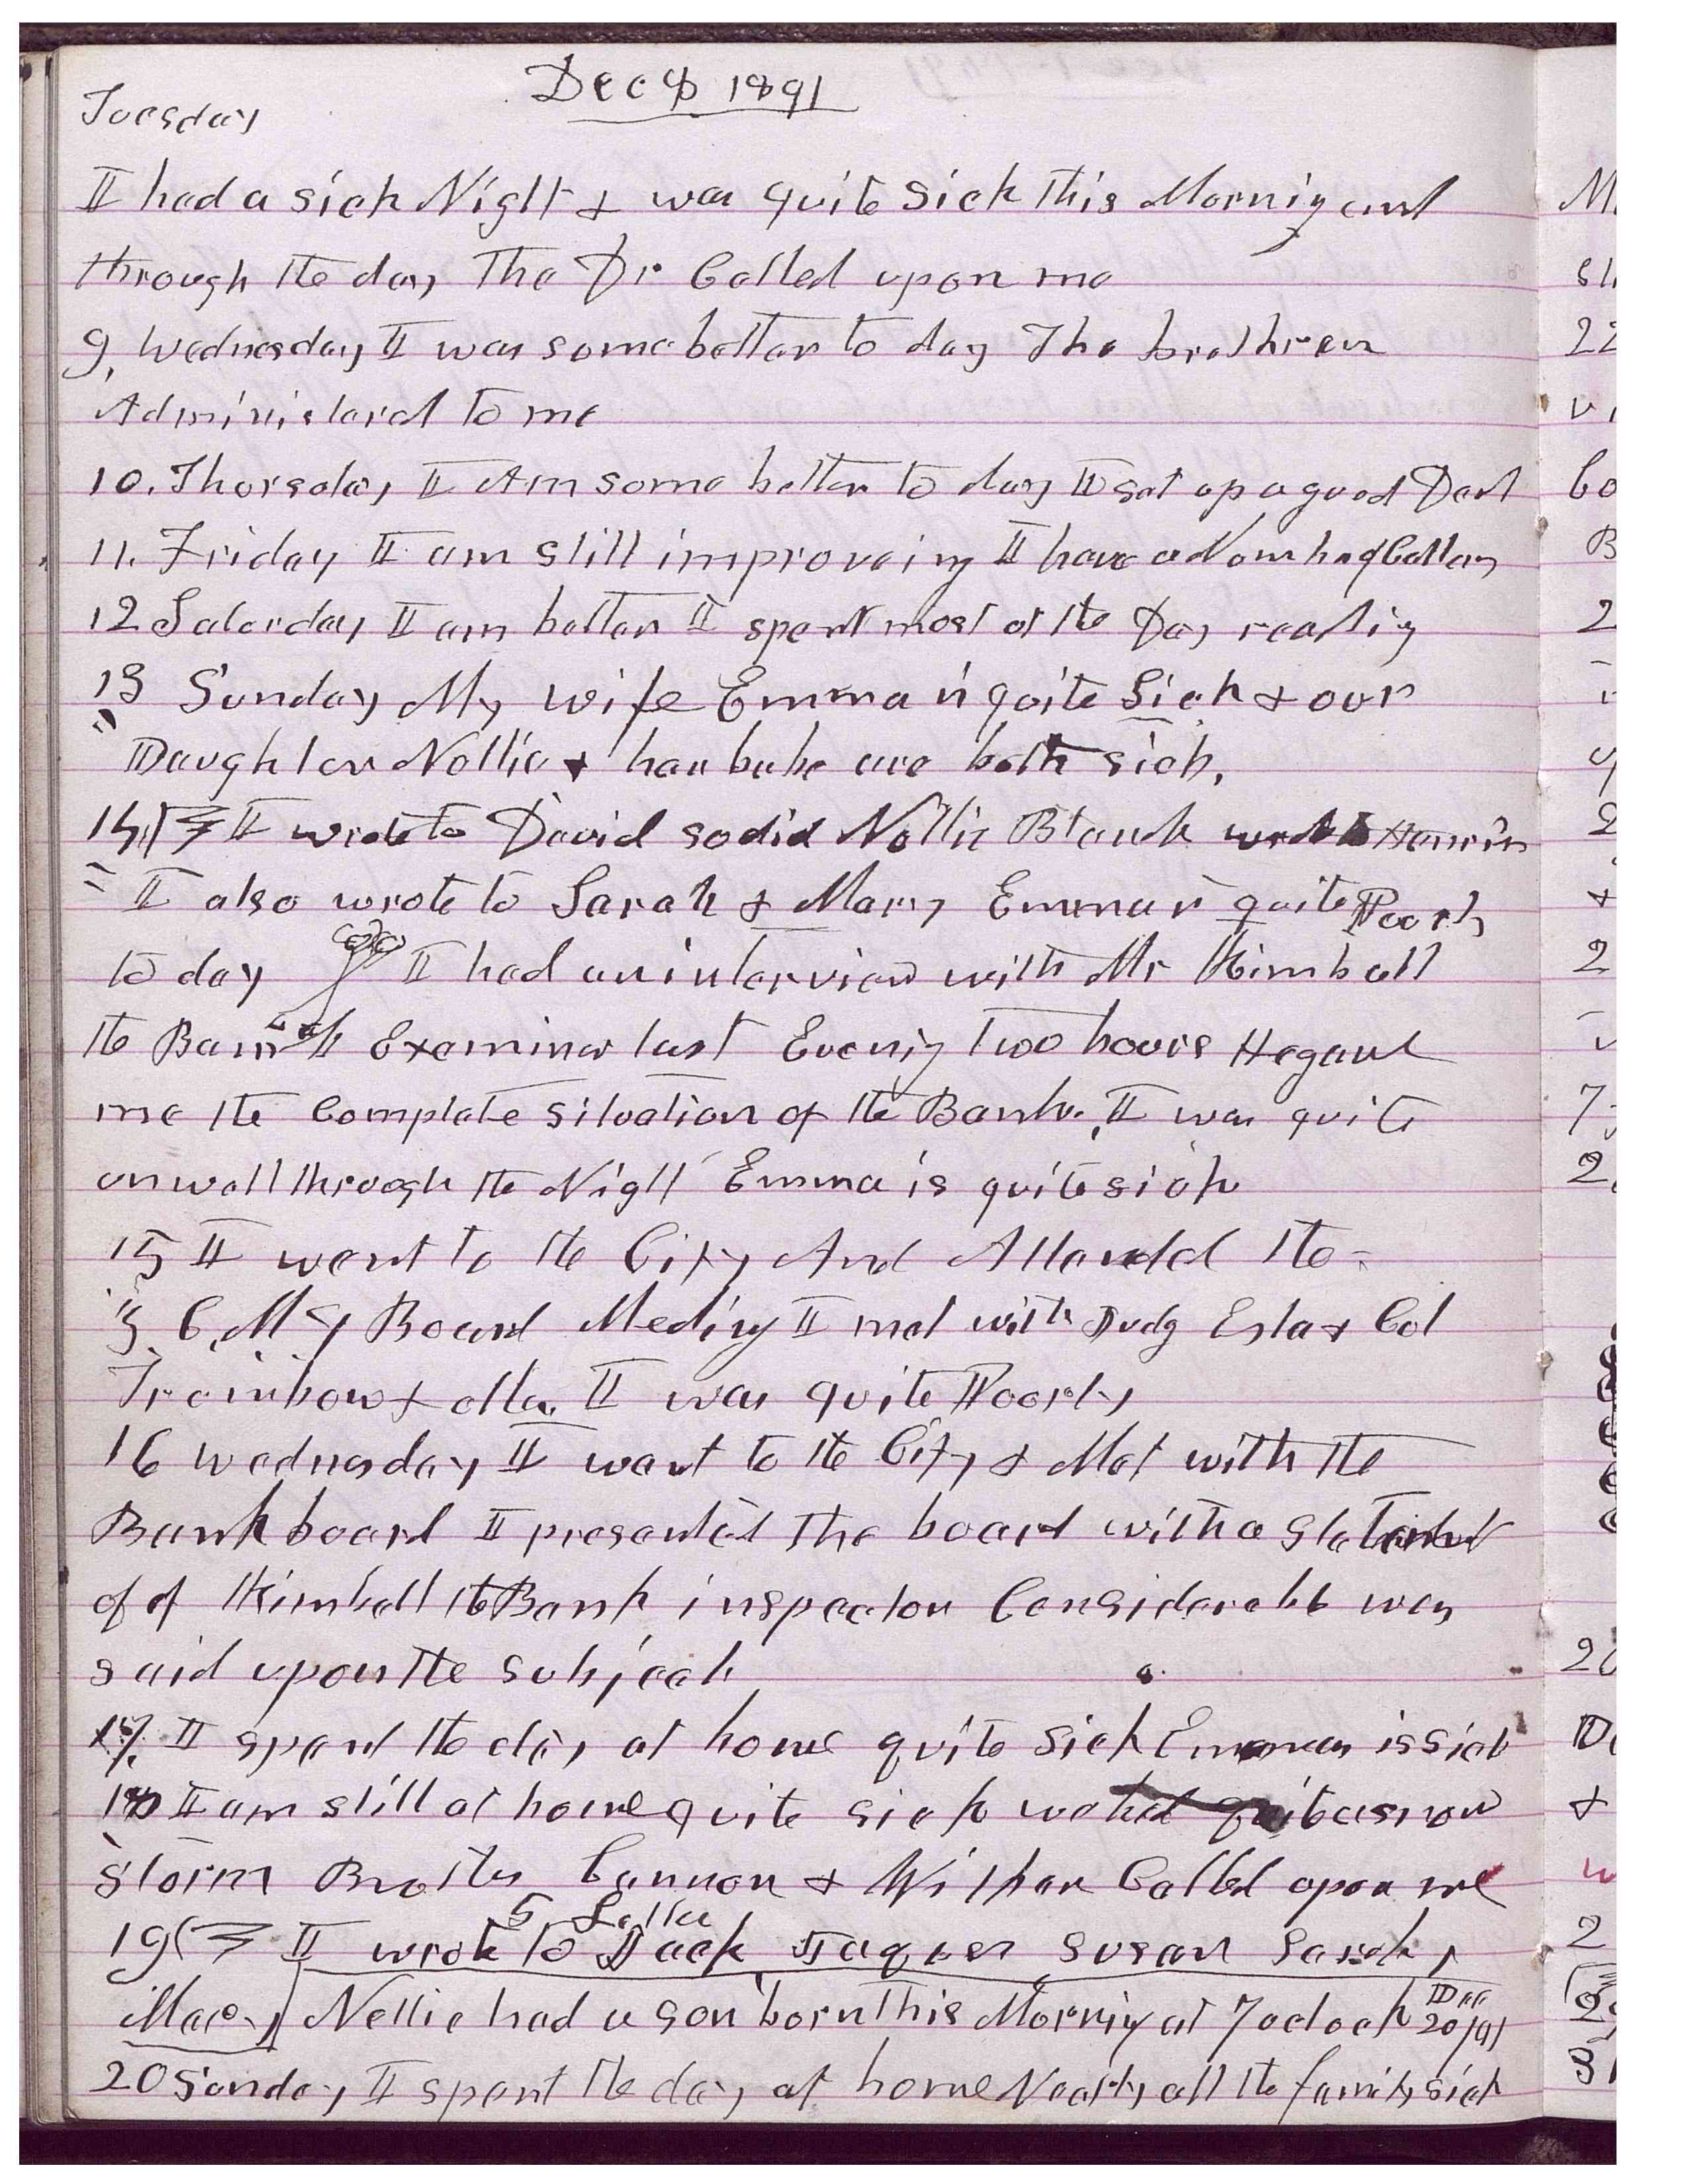 Dec 8 1891
Tuesday
I had a sick Night & was quite sick this Morning and
through the day The Dr Called upon me
9, Wednesday I was some better to day The brethren
Administered to me
10. Thursday I Am some better to day I sat up a good Deal
11. Friday I am still improveing I have a
12 Saturday I am better I spent most of the Day reading
13 Sunday My wife Emma is quite Sick & our
Daughter Nellie & her babe are both sick.
14, I wrote to David so did Nellie Blanch wrote to
I also wrote to Sarah & Mary Emma is quite Poorly
to day I had an interview with Mr Kimball
the Bank Examiner last Evening Two hours He gave
me the Complete situation of the Bank. I was quite
unwell through the Night Emma is quite sick
15 I went to the City And Attended the
Z C M I Board Meeting I met with Judg & Col
Trumbow & other I was quite Poorly
16 Wednesday I went to the City & Met with the
Bank board I presented the board with a Statement
of of Kimball the Bank inspector Considerable was
said upon the subject
17. I spent the day at home quite sick Emma is sick
18 I am still at home quite sick we had quite a snow
storm Brother Cannon & Wilken Called upon me
5 Letter
19 I wrote to Jack Jaques Susan Sarah,
Mary Nellie had a son born this Morning at 7 oclock Dec 20/91
20 Sunday I spent the day at home Nearly all the family sick
M
22
Co
B
2
2
&
2
2
20
D
&
2